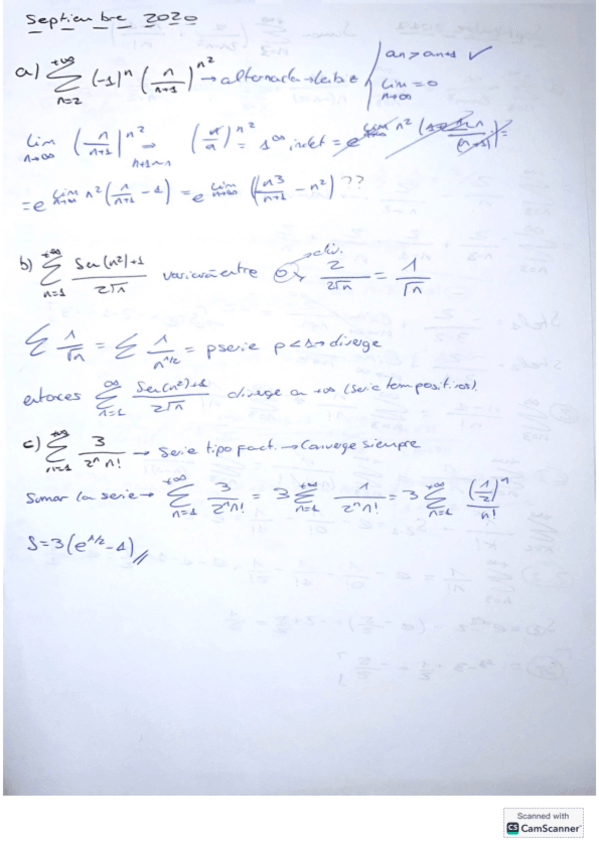 Septiembre 2020
a) $\sum_{n=2}^{+\infty} (-1)^n \left(\frac{n}{n+1}\right)^{n^2}$ → alternada → Leibniz { an > an+1 ✓
lim_{n→∞} = 0
$\lim_{n\to\infty} \left(\frac{n}{n+1}\right)^{n^2} \underset{n+1 \sim n}{\Rightarrow} \left(\frac{n}{n}\right)^{n^2} = 1^{\infty}$ indet =
$= e^{\lim_{n\to\infty} n^2\left(\frac{n}{n+1} - 1\right)} = e^{\lim_{n\to\infty} \left(\frac{n^3}{n+1} - n^2\right)}$ ??
b) $\sum_{n=1}^{+\infty} \frac{Sen(n^2)+1}{2\sqrt{n}}$ variará entre 0 y $\frac{2}{2\sqrt{n}} = \frac{1}{\sqrt{n}}$
→ div.
$\sum \frac{1}{\sqrt{n}} = \sum \frac{1}{n^{1/2}}$ = pserie p<1 → diverge
entonces $\sum_{n=1}^{\infty} \frac{Sen(n^2)+1}{2\sqrt{n}}$ diverge a +∞ (serie tem positivos)
c) $\sum_{n=1}^{+\infty} \frac{3}{2^n n!}$ → Serie tipo fact. → Converge siempre
Sumar la serie → $\sum_{n=1}^{+\infty} \frac{3}{2^n n!} = 3\sum_{n=1}^{+\infty} \frac{1}{2^n n!} = 3\sum_{n=1}^{+\infty} \frac{\left(\frac{1}{2}\right)^n}{n!}$
$S = 3(e^{1/2} - 1)$ //
Scanned with
CS CamScanner